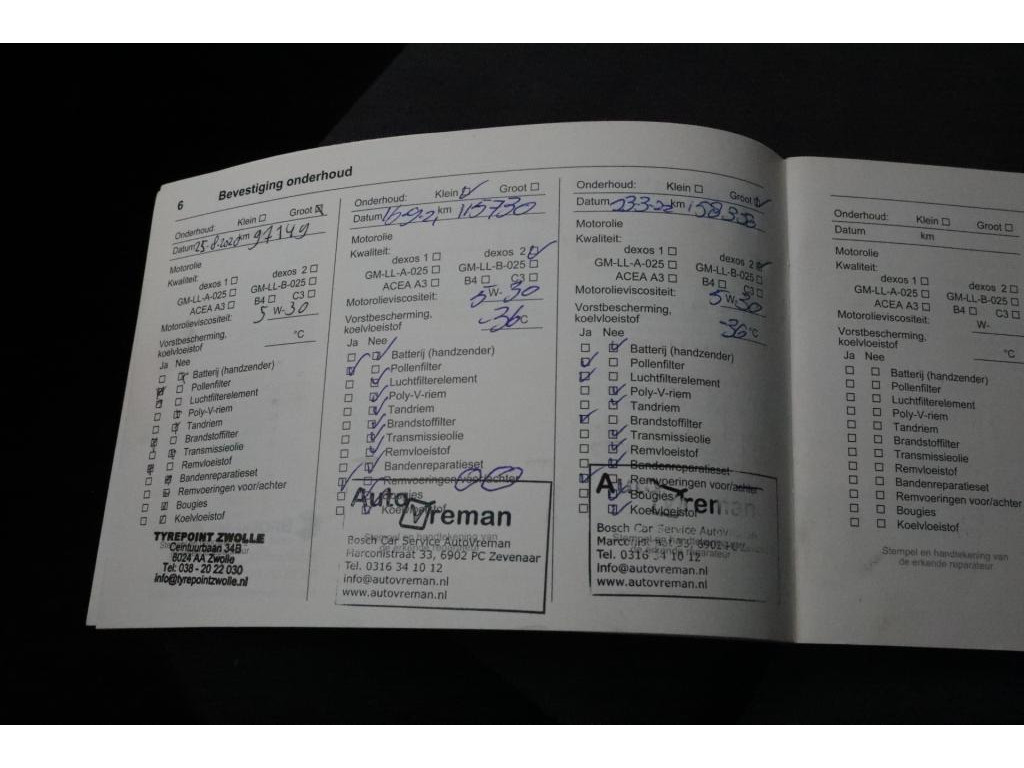 6
Bevestiging onderhoud
Onderhoud: Klein ☐ Groot ☒
Datum 25-8-2020 km 97149
Motorolie
Kwaliteit:
dexos 1 ☐ dexos 2 ☐
GM-LL-A-025 ☐ GM-LL-B-025 ☐
ACEA A3 ☐ B4 ☐ C3 ☐
Motorolieviscositeit: 5 W- 30
Vorstbescherming,
koelvloeistof °C
Ja Nee
Batterij (handzender)
Pollenfilter
Luchtfilterelement
Poly-V-riem
Tandriem
Brandstoffilter
Transmissieolie
Remvloeistof
Bandenreparatieset
Remvoeringen voor/achter
Bougies
Koelvloeistof
TYREPOINT ZWOLLE
Ceintuurbaan 34B
8024 AA Zwolle
Tel: 038 - 20 22 030
info@tyrepointzwolle.nl
Onderhoud: Klein ☑ Groot ☐
Datum 15-9-21 km 115730
Motorolie
Kwaliteit:
dexos 1 ☐ dexos 2 ☑
GM-LL-A-025 ☐ GM-LL-B-025 ☐
ACEA A3 ☐ B4 ☐ C3 ☐
Motorolieviscositeit: 5 W- 30
Vorstbescherming,
koelvloeistof -36 °C
Ja Nee
Batterij (handzender)
Pollenfilter
Luchtfilterelement
Poly-V-riem
Tandriem
Brandstoffilter
Transmissieolie
Remvloeistof
Bandenreparatieset
Remvoeringen voor/achter
Bougies
Koelvloeistof
Stempel en handtekening van
de erkende reparateur
Auto Vreman
Bosch Car Service AutoVreman
Marconistraat 33, 6902 PC Zevenaar
Tel. 0316 34 10 12
info@autovreman.nl
www.autovreman.nl
Onderhoud: Klein ☐ Groot ☑
Datum 23-3-22 km 158938
Motorolie
Kwaliteit:
dexos 1 ☐ dexos 2 ☑
GM-LL-A-025 ☐ GM-LL-B-025 ☐
ACEA A3 ☐ B4 ☐ C3 ☐
Motorolieviscositeit: 5 W- 30
Vorstbescherming,
koelvloeistof -36 °C
Ja Nee
Batterij (handzender)
Pollenfilter
Luchtfilterelement
Poly-V-riem
Tandriem
Brandstoffilter
Transmissieolie
Remvloeistof
Bandenreparatieset
Remvoeringen voor/achter
Bougies
Koelvloeistof
Bosch Car Service
Tel. 0316 34 10 12
info@autovreman.nl
www.autovreman.nl
Onderhoud: Klein ☐ Groot ☐
Datum km
Motorolie
Kwaliteit:
dexos 1 ☐ dexos 2 ☐
GM-LL-A-025 ☐ GM-LL-B-025 ☐
ACEA A3 ☐ B4 ☐ C3
Motorolieviscositeit: W-
Vorstbescherming,
koelvloeistof °C
Ja Nee
☐ ☐ Batterij (handzender)
☐ ☐ Pollenfilter
☐ ☐ Luchtfilterelement
☐ ☐ Poly-V-riem
☐ ☐ Tandriem
☐ ☐ Brandstoffilter
☐ ☐ Transmissieolie
☐ ☐ Remvloeistof
☐ ☐ Bandenreparatieset
☐ ☐ Remvoeringen voor/achter
☐ ☐ Bougies
☐ ☐ Koelvloeistof
Stempel en handtekening van
de erkende reparateur